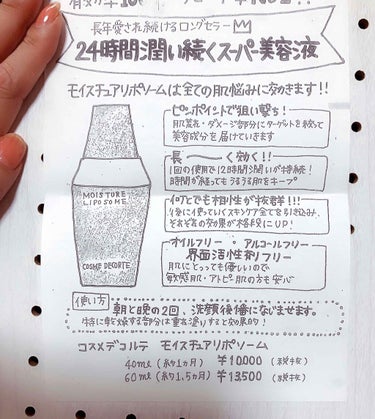 長年愛され続けるロングセラー
24時間潤い続くスーパー美容液
モイスチュアリポソームは全ての肌悩みに効きます!!
ピンポイントで狙い撃ち!
肌荒れ・ダメージ部分にターゲットを絞って
美容成分を届けていきます
長〜く効く!!
1回の使用で12時間潤いが持続!
時間が経ってもうるうる肌をキープ
何とでも相性が抜群!!!
後に使っていくスキンケア全てを引き込み、
それぞれの効果が格段にUP!
オイルフリー・アルコールフリー
界面活性剤フリー
肌にとっても優しいので
敏感肌・アトピー肌の方も安心
MOISTURE
LIPOSOME
COSME DECORTE
使い方
朝と晩の2回、洗顔後横になじませます。
特に乾燥する部分は重ね塗りすると効果的!
コスメデコルテ モイスチュアリポソーム
40ml (約1ヵ月) ¥10,000 (税抜)
60ml (約1.5ヵ月) ¥13,500 (税抜)